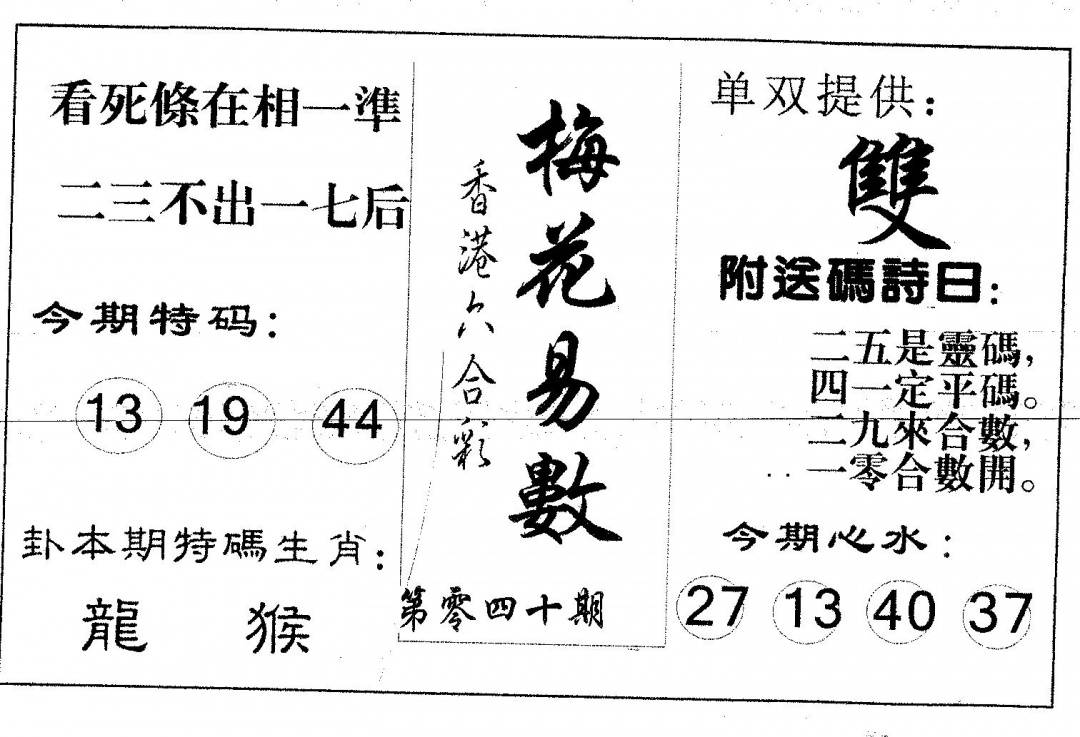 看死條在相一準
二三不出一七后
今期特码：
13 19 44
卦本期特碼生肖：
龍 猴
梅花易數
香港六合彩
第零四十期
单双提供：
雙
附送碼詩日：
二五是靈碼，
四一定平碼。
二九來合數，
一零合數開。
今期心水：
27 13 40 37